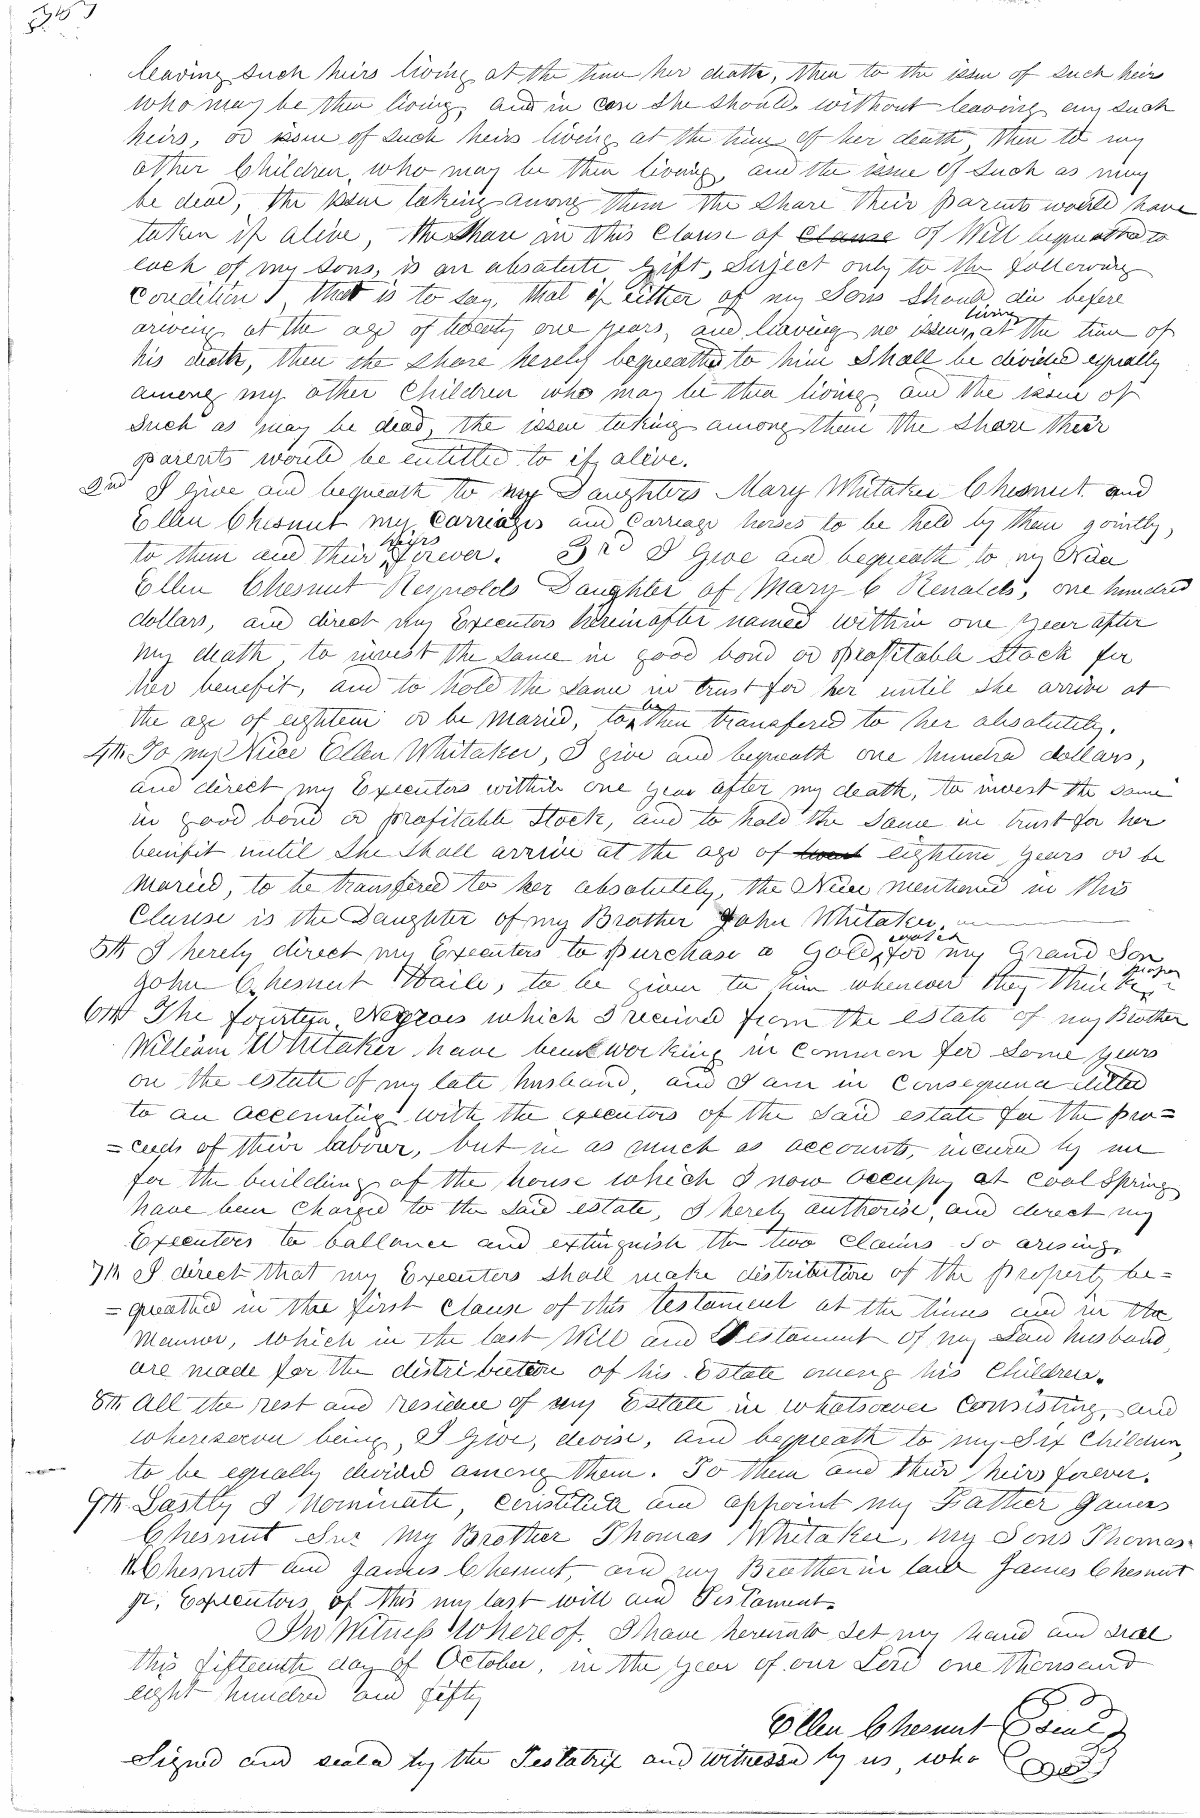 leaving such heirs living at the time her death, then to the issue of such heirs
who may be then living, and in case she should without leaving any such
heirs, or issue of such heirs living at the time of her death, then to my
other Children, who may be then living, and the issue of such as may
be dead, the issue taking among them the share their parents would have
taken if alive, the share in this Clause of Clause of Will bequeathed to
each of my sons, is an absolute gift, Subject only to the following
Condition, that is to say, that if either of my Sons should die before
ariving at the age of twenty one years, and leaving no issue living at the time of
his death, then the share hereby bequeathed to him shall be divided equally
among my other Children who may be then living, and the issue of
such as may be dead, the issue taking among them the share their
parents would be entitled to if alive.
2nd I Give and bequeath to my Daughters Mary Whitaker Chesnut and
Ellen Chesnut my Carriages and Carriage horses to be held by them jointly,
to them and their heirs forever. 3rd I Give and bequeath to my Niece
Ellen Chesnut Reynolds Daughter of Mary C Renalds, one hundred
dollars, and direct my Executors hereinafter named within one year after
my death, to invest the same in good bond or profitable Stock for
her benefit, and to hold the same in trust for her until she arrive at
the age of eighteen or be maried, to be then transfered to her absolutely.
4th To my Niece Ellen Whitaker, I give and bequeath one hundred dollars,
and direct my Executors within one year after my death, to invest the same
in good bond or profitable Stock, and to hold the same in trust for her
benifit until She shall arrive at the age of eighteen years or be
maried, to be transfered to her absolutely, the Niece mentioned in this
Clause is the Daughter of my Brother John Whitaker.
5th I hereby direct my Executors to purchase a Gold watch for my Grand Son
John Chesnut Haile, to be given to him whenever they think proper
6th The fourteen Negroes which I received from the estate of my Brother
William Whitaker have been working in common for some years
on the estate of my late husband, and I am in consequence
to an accounting with the executors of the said estate for the pro=
=ceeds of their labour, but in as much as accounts, incured by me
for the building of the house which I now occupy at Cool Spring
have been charged to the said estate, I hereby authorise, and direct my
Executors to ballance and extinguish the two claims so arising.
7th I direct that my Executors shall make distribution of the property be=
=queathed in the first clause of this testament at the times and in the
manner, which in the last Will and Testament of my said husband,
are made for the distribution of his Estate among his Children.
8th All the rest and residue of my Estate in whatsoever consisting, and
wheresoever being, I give, devise, and bequeath to my Six Children,
to be equally divided among them. To them and their heirs forever.
9th Lastly I nominate, constitute and appoint my Father James
Chesnut Snr my Brother Thomas Whitaker, my Sons Thomas
W. Chesnut and James Chesnut, and my Brother in law James Chesnut
jr, Executors of this my last will and Testament.
In Witness Whereof, I have hereunto set my hand and seal
this fifteenth day of October, in the year of our Lord one thousand
eight hundred and fifty
Ellen Chesnut Seal
Signed and seald by the Testatrix and witnessed by us, who